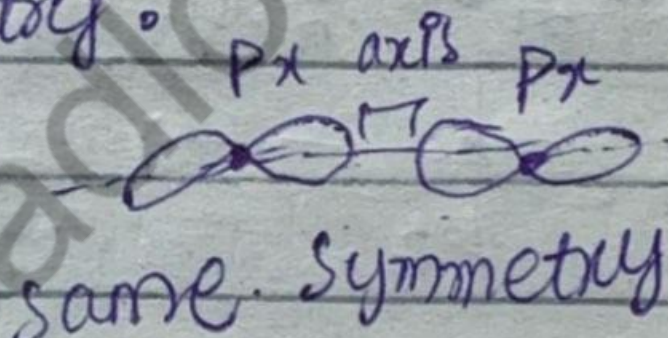 Px axis Px
same. symmetry